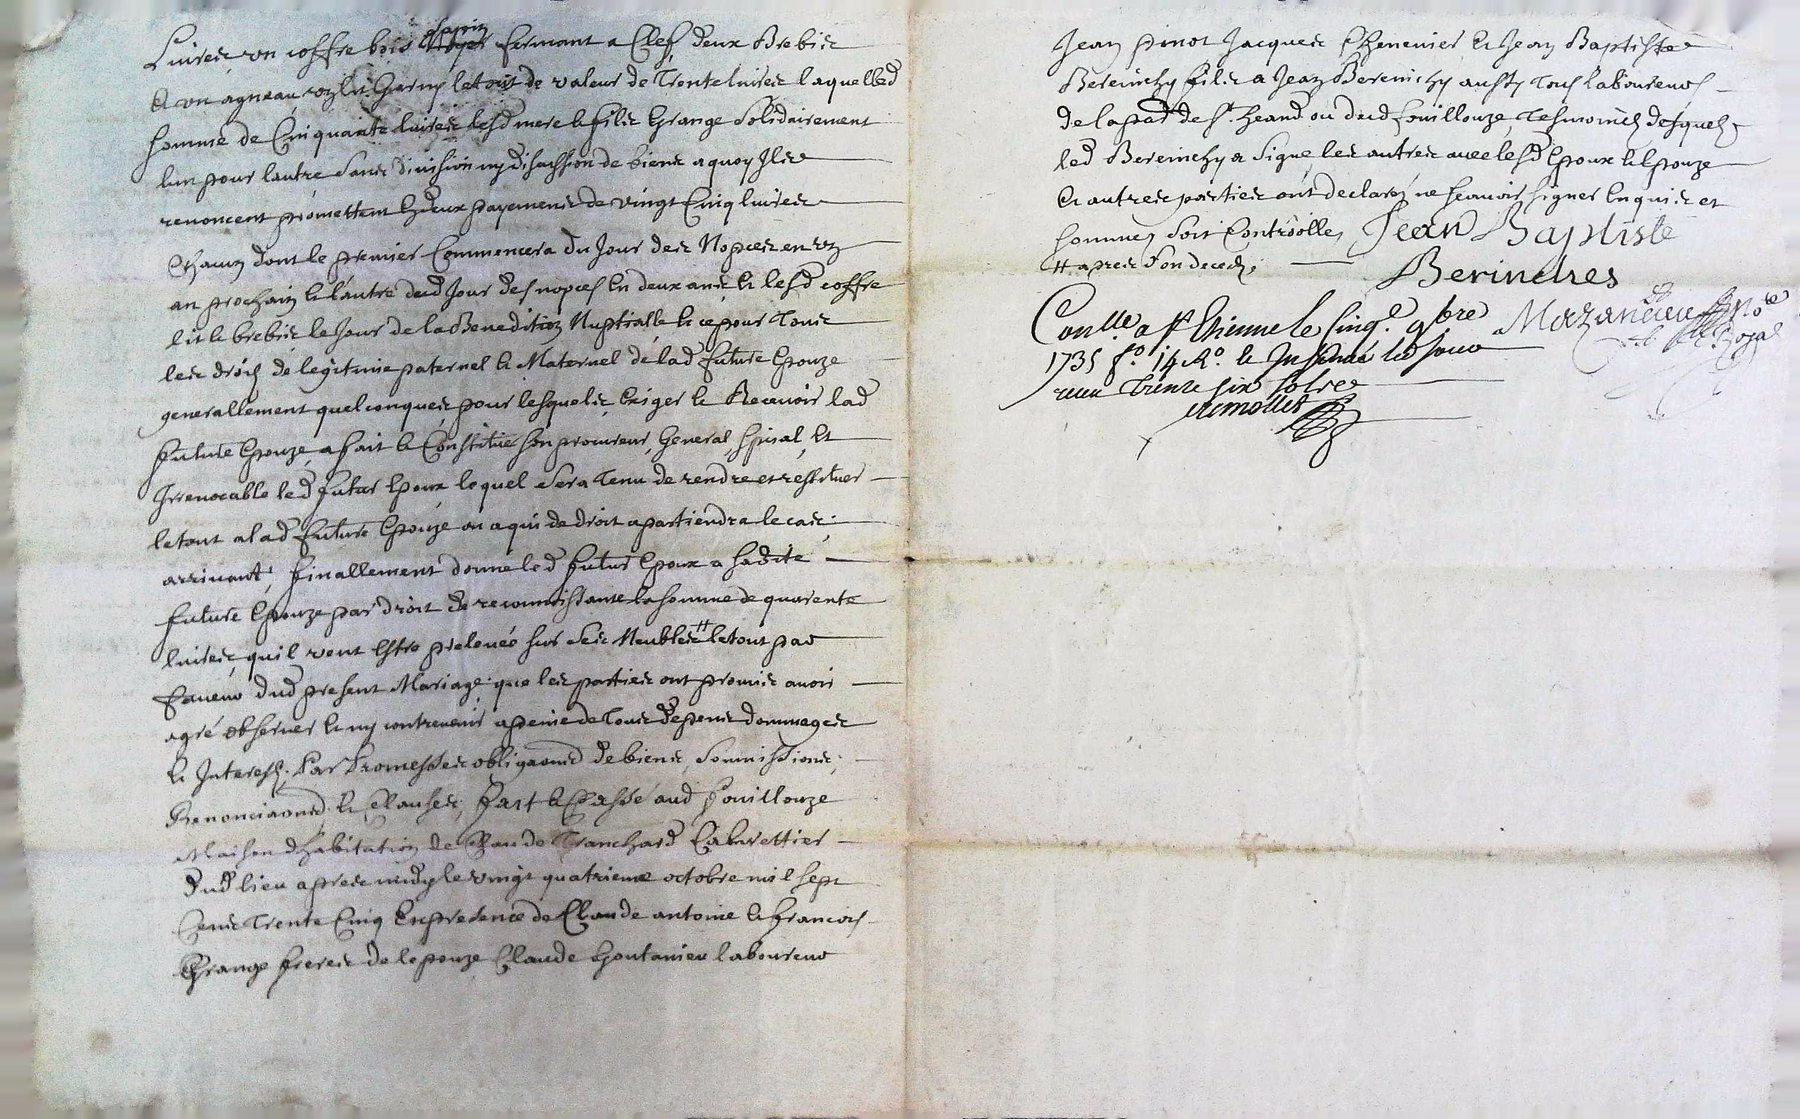 Livres un coffre bois sapin fermant a Clef, deux Brebis
et un agneau un lit Garny letout de valeur de Trente livres laquelle d
somme de Cinquante livres lesd mere et fils Grange Solidairement
lun pour lautre Sans division ny discussion de biens a quoy Ils
renoncent promettent Endeux payements de vingt Cinq livres
Chacun dont le premier Commencera du Jour des Nopces en un
an prochain et lautre dud Jour des nopces En deux ans et lesd coffre
lit et brebis le Jour de la Benediction Nuptialle et ce pour Tous
les droits de legitime paternel et Maternel de lad future Epouze
generallement quelconques pour lesquels Exiger et Recevoir lad
future Epouze a fait et Constitué son procureur, General, Spécial, Et
Irrevocable led futur Epoux lequel Sera Tenu de rendre et restituer
letout a lad future Epouze ou a qui de droit apartiendra le cas
arrivant, finallement donne led futur Epoux a sadite
future Epouze par droit de reconnoissance la somme de quarente
livres quil veut Estre prelevée sur Ses Meubles # letout par
faveur dud present Mariage que les parties ont promis avoir
agré observer et ny contrevenir a peine de Tous depens dommages
et Interest, Par Promesses obligaons de biens, Soumissions,
Renonciaons et Clauses, fait et Passé aud fouillouze
Maison dhabitation de Claude Tranchard Cabarettier
dud lieu apres midy le vingt quatrieme octobre mil sept
Cents Trente Cinq En presence de Claude antoine et francois
Grange freres de lepouze Claude laboureur
Jean pinot Jacques et Jean Baptiste
Bereinchy fils a Jean Bereinchy aussy Tous laboureurs
de la par de St heand ou dud fouillouze Tesmoins desquels
led Bereinchy a Signé les autres avec lesd Epoux et Epouze
et autres parties ont declaré ne scavoir signer Enquis et
sommes Soit Controllé, Jean Baptiste
# apres Son deces, Berinches
Conllé a St Etienne le Cinq. 9bre
1735 fo. 14 Ro. et Insinué led Jour
receu Trente six sols